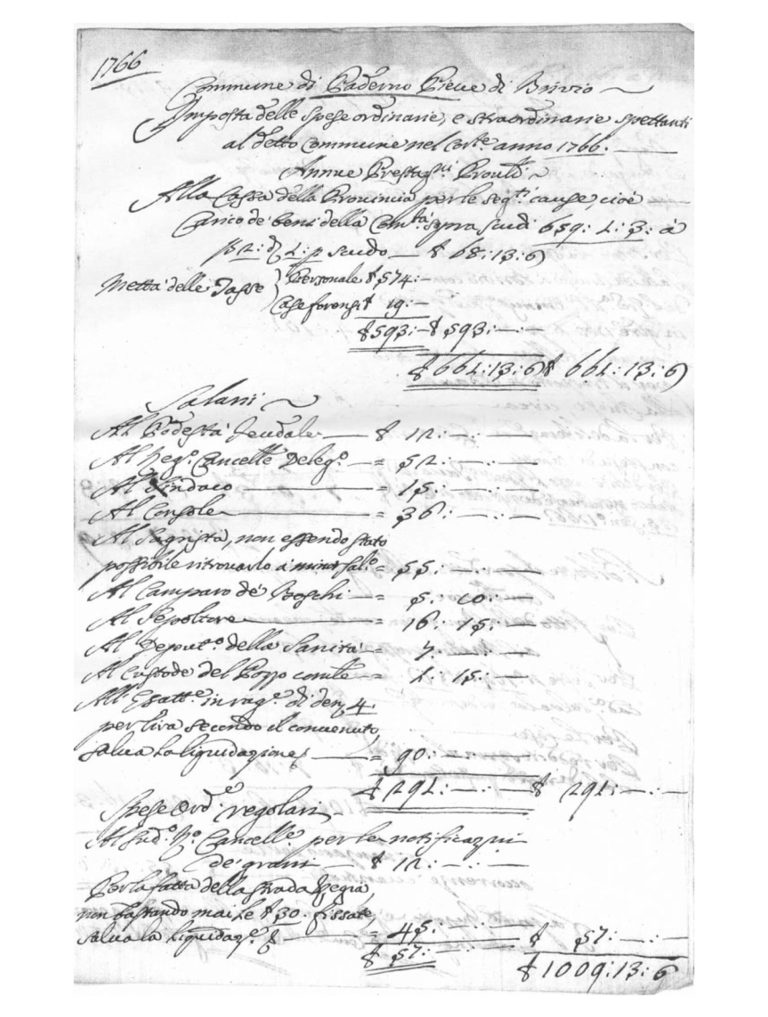 1766
Commune di Paderno Pieve di Brivio
Imposta delle spese ordinarie, e straordinarie spettanti
al detto Commune nel Cor.te anno 1766. ——
Annue Prestaz.ni Prov.li
Alla Cassa della Provincia per le seg.ti cause, cioè
Carico de beni della Com.tà sopra scudi 659: 4: 3: à
scudo — £ 68:13:6
Mettà delle Tasse Personale £ 574:—
Case forensi £ 19:—
£ 593:— £ 593:—:—
£ 661:13:6 £ 661:13:6
Salarii
Al Podestà feudale —— £ 12:—:—
Al Reg.o Cancell.e Deleg.o — = 52:—:—
Al Sindaco —— = 15:—:—
Al Console —— = 36:—:—
Al Sagrista, non essendo stato
possibile ritrovarlo à minor sal.o = 55:—:—
Al Camparo de Boschi — = 5: 10:—
Al Sepoltore —— = 16: 15:—
Al Deput.o della Sanità — = 7:—:—
Al Custode del Pozzo — = 4: 15:—
All' Esatt.e in rag.e di den. 4
per lira secondo il convenuto,
salva la liquidazione —— = 90:—:—
£ 291:—:— £ 291:—:—
Spese Ord.e regolari
Al Sud.o R.o Cancell.e per le notificaz.ni
de' grani — £ 12:—:—
Per la fatta della strada Regia,
non bastando mai le £ 30. fissate,
salva la liquidaz.e —— = 45:—:—
£ 57:—:— £ 57:—:—
£ 1009:13:6